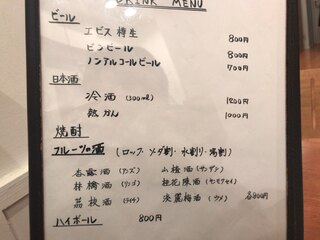 DRINK MENU
ビール
エビス樽生 800円
ビンビール 800円
ノンアルコールビール 700円
日本酒
冷酒 (300ml) 1200円
熱かん 1000円
焼酎
フルーツの酒 (ロック・ソーダ割・水割り・湯割)
杏露酒 (アンズ) 山楂酒 (サンザシ)
林檎酒 (リンゴ) 桂花陳酒 (キンモクセイ) 各800円
茘枝酒 (ライチ) 淡麗梅酒 (ウメ)
ハイボール 800円